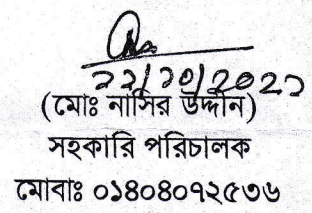 ২২/১০/২০২১
(মোঃ নাসির উদ্দীন)
সহকারি পরিচালক
মোবাঃ ০১৪০৪০৭২৫৩৬